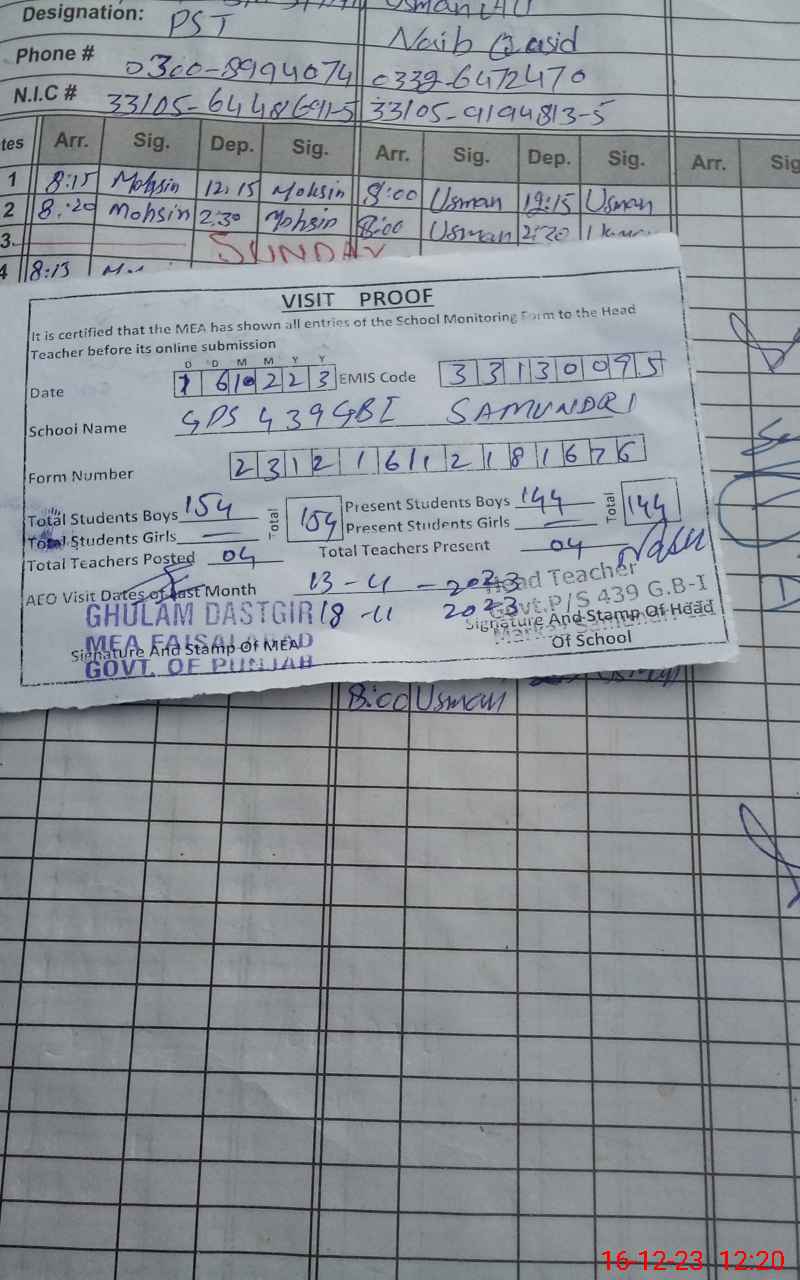 Usman Ali
Designation: PST Naib Qasid
Phone # 0300-8994074 0339-6472470
N.I.C # 33105-6448691-5 33105-9194813-5
tes Arr. Sig. Dep. Sig. Arr. Sig. Dep. Sig. Arr. Sig
1 8:15 Mohsin 12:15 Mohsin 8:00 Usman 12:15 Usman
2 8:20 Mohsin 2:30 Mohsin 8:00 Usman 2:30
3. SUNDAY
4 8:13
VISIT PROOF
It is certified that the MEA has shown all entries of the School Monitoring Form to the Head
Teacher before its online submission
D D M M Y Y
Date 161223 EMIS Code 33130095
School Name GPS 439 GBI SAMUNDRI
Form Number 23121612181676
Total Students Boys 154 Total 154 Present Students Boys 144 Total 144
Total Students Girls — Present Students Girls —
Total Teachers Posted 04 Total Teachers Present 04
AEO Visit Dates of last Month 13-11-2023
18-11 2023
Head Teacher
Govt.P/S 439 G.B-I
GHULAM DASTGIR
MEA FAISALABAD
GOVT. OF PUNJAB
Signature And Stamp Of MEA
Signature And Stamp Of Head
Of School
8:00 Usman
16-12-23 12:20